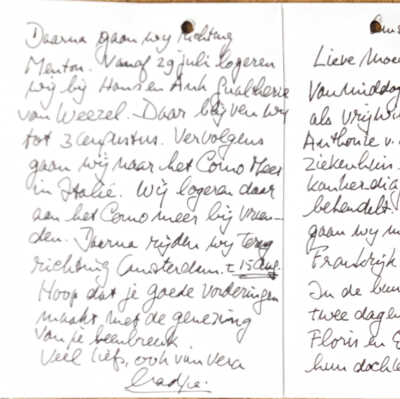 Daarna gaan wij richting
Menton. Vanaf 29 juli logeren
wij bij Hans en Ank
van Weezel. Daar blijven wij
tot 3 augustus. Vervolgens
gaan wij naar het Como Meer
in Italië. Wij logeren daar
aan het Como meer bij vrien-
den. Daarna rijden wij terug
richting Amsterdam ± 15 aug.
Hoop dat je goede vorderingen
maakt met de genezing
van je beenbreuk.
Veel liefs, ook van Vera
Lieve
Vanmiddag
als vrijwi
Anthonie v.
ziekenhuis
kankerdia
behandelt.
gaan wij
Frankrijk
In de
twee dage
Floris en
hun dochte